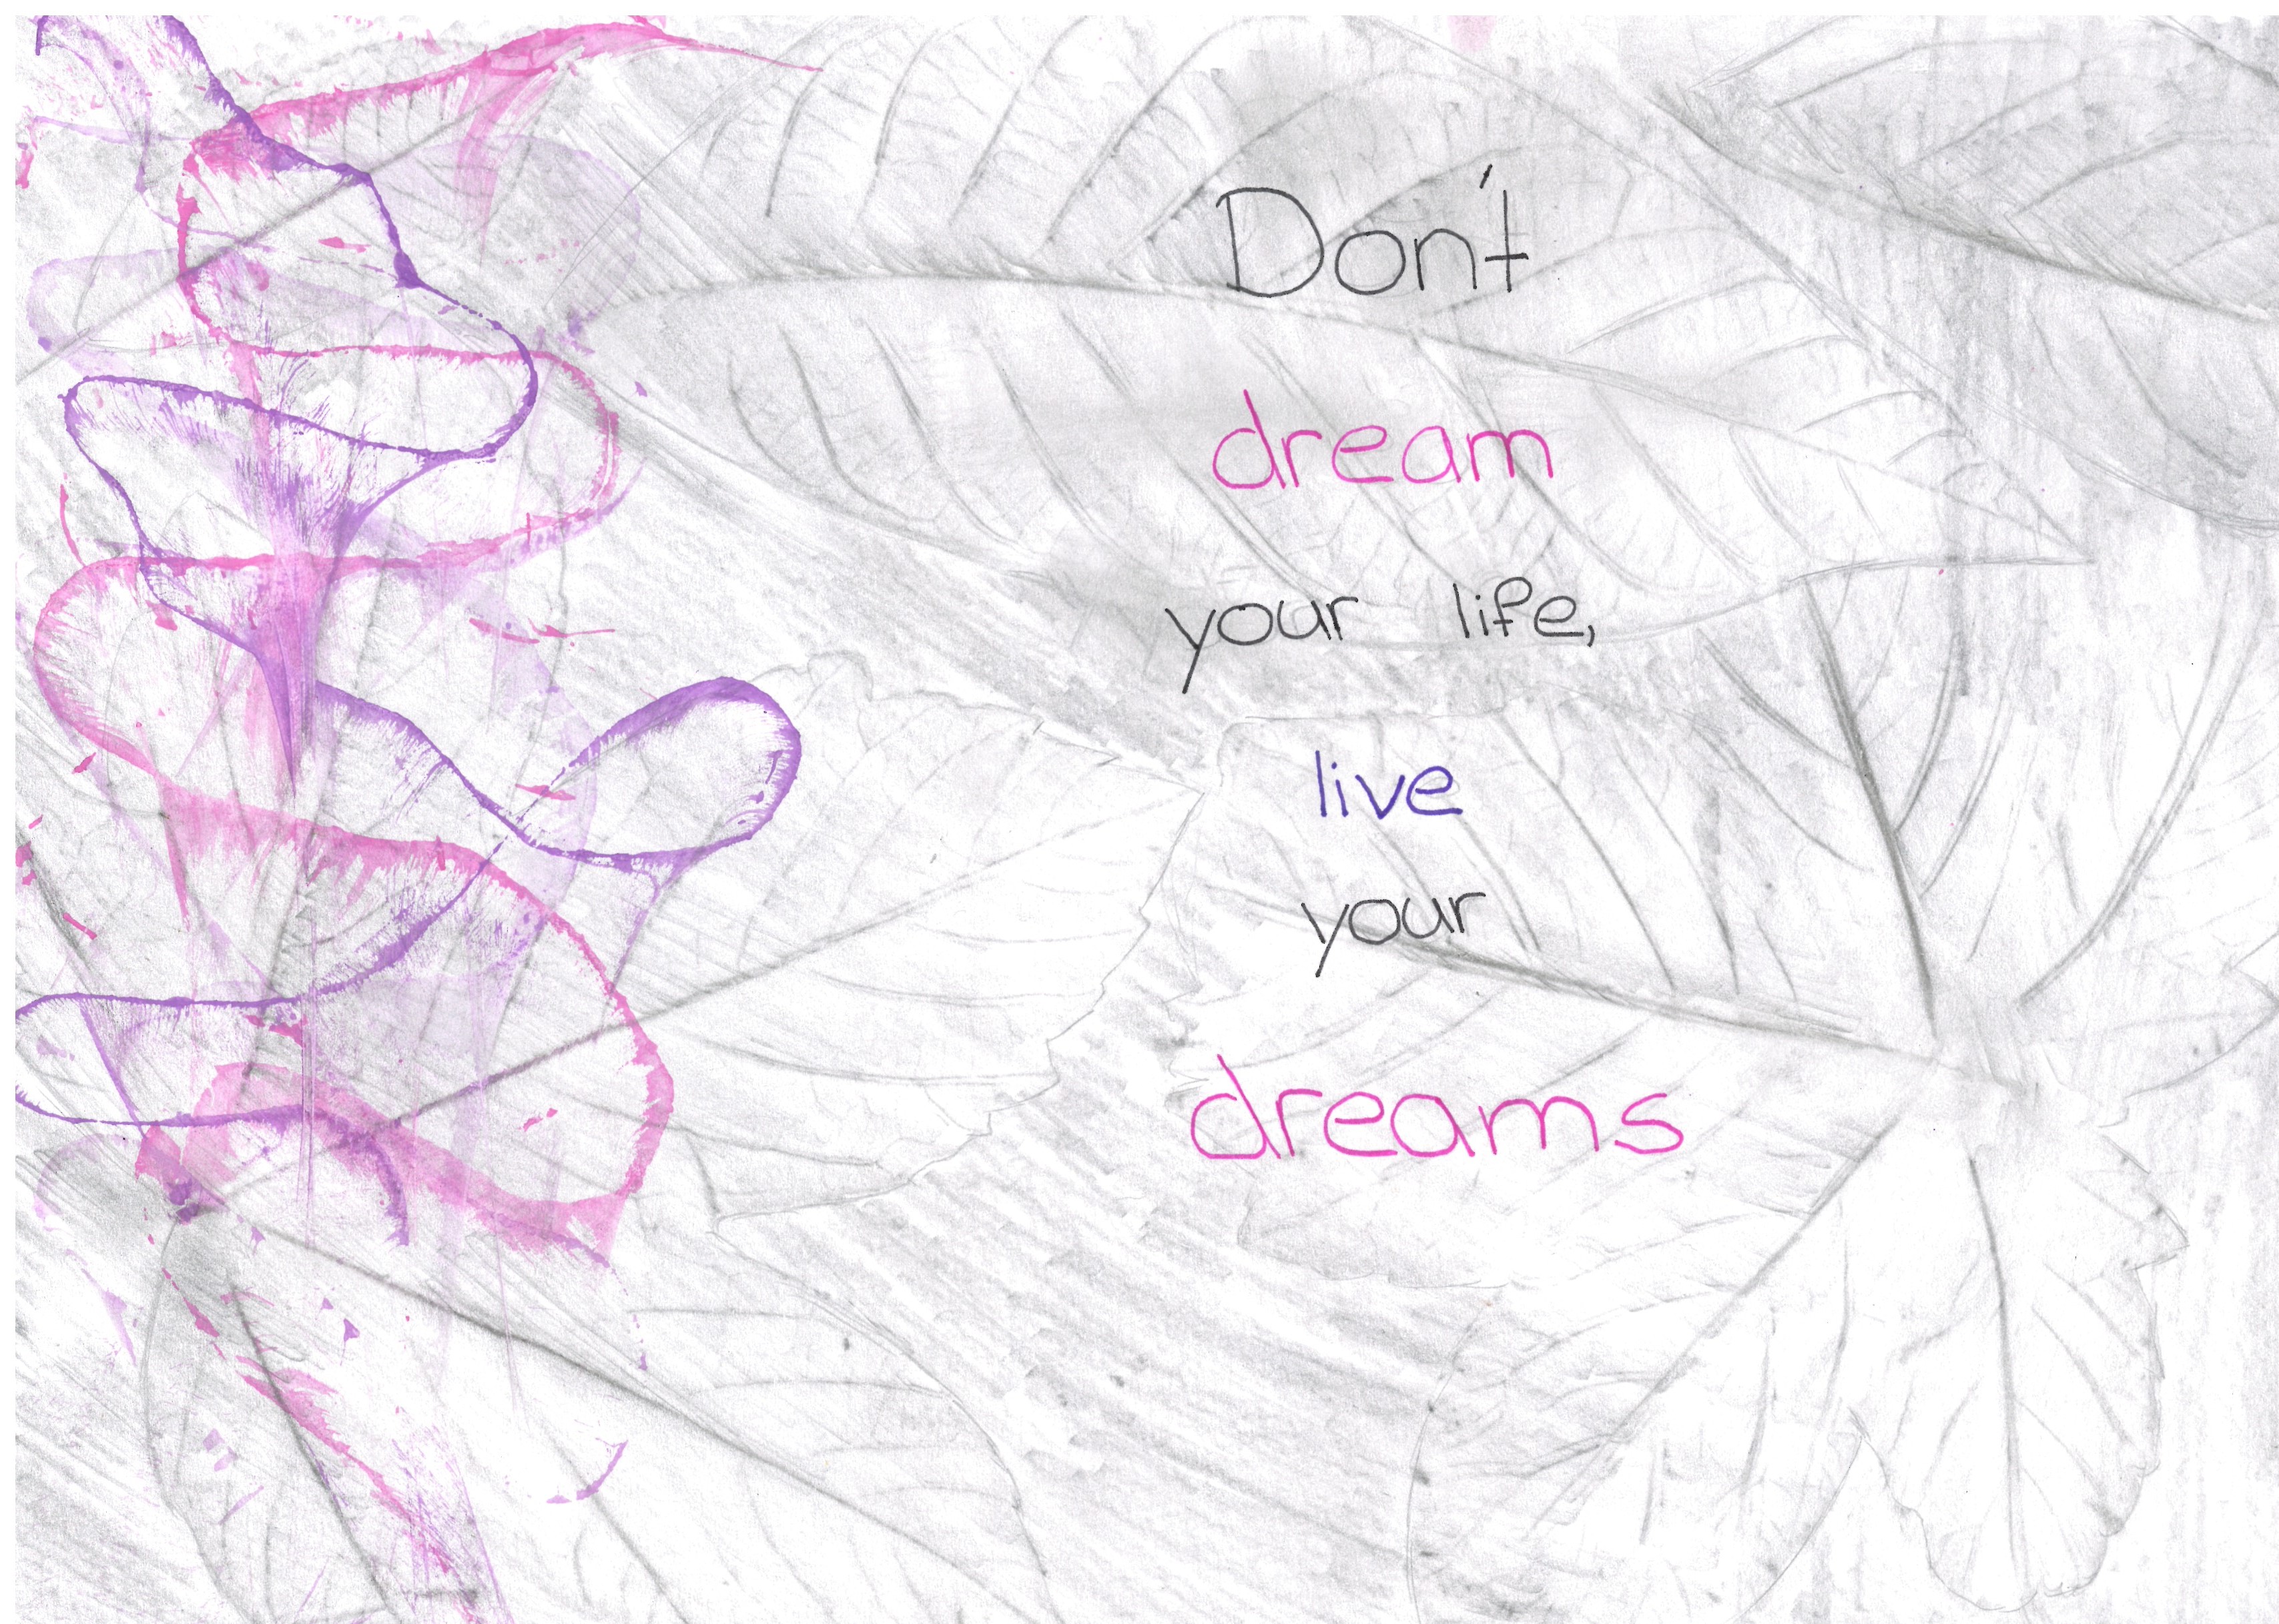 Don't
dream
your life,
live
your
dreams